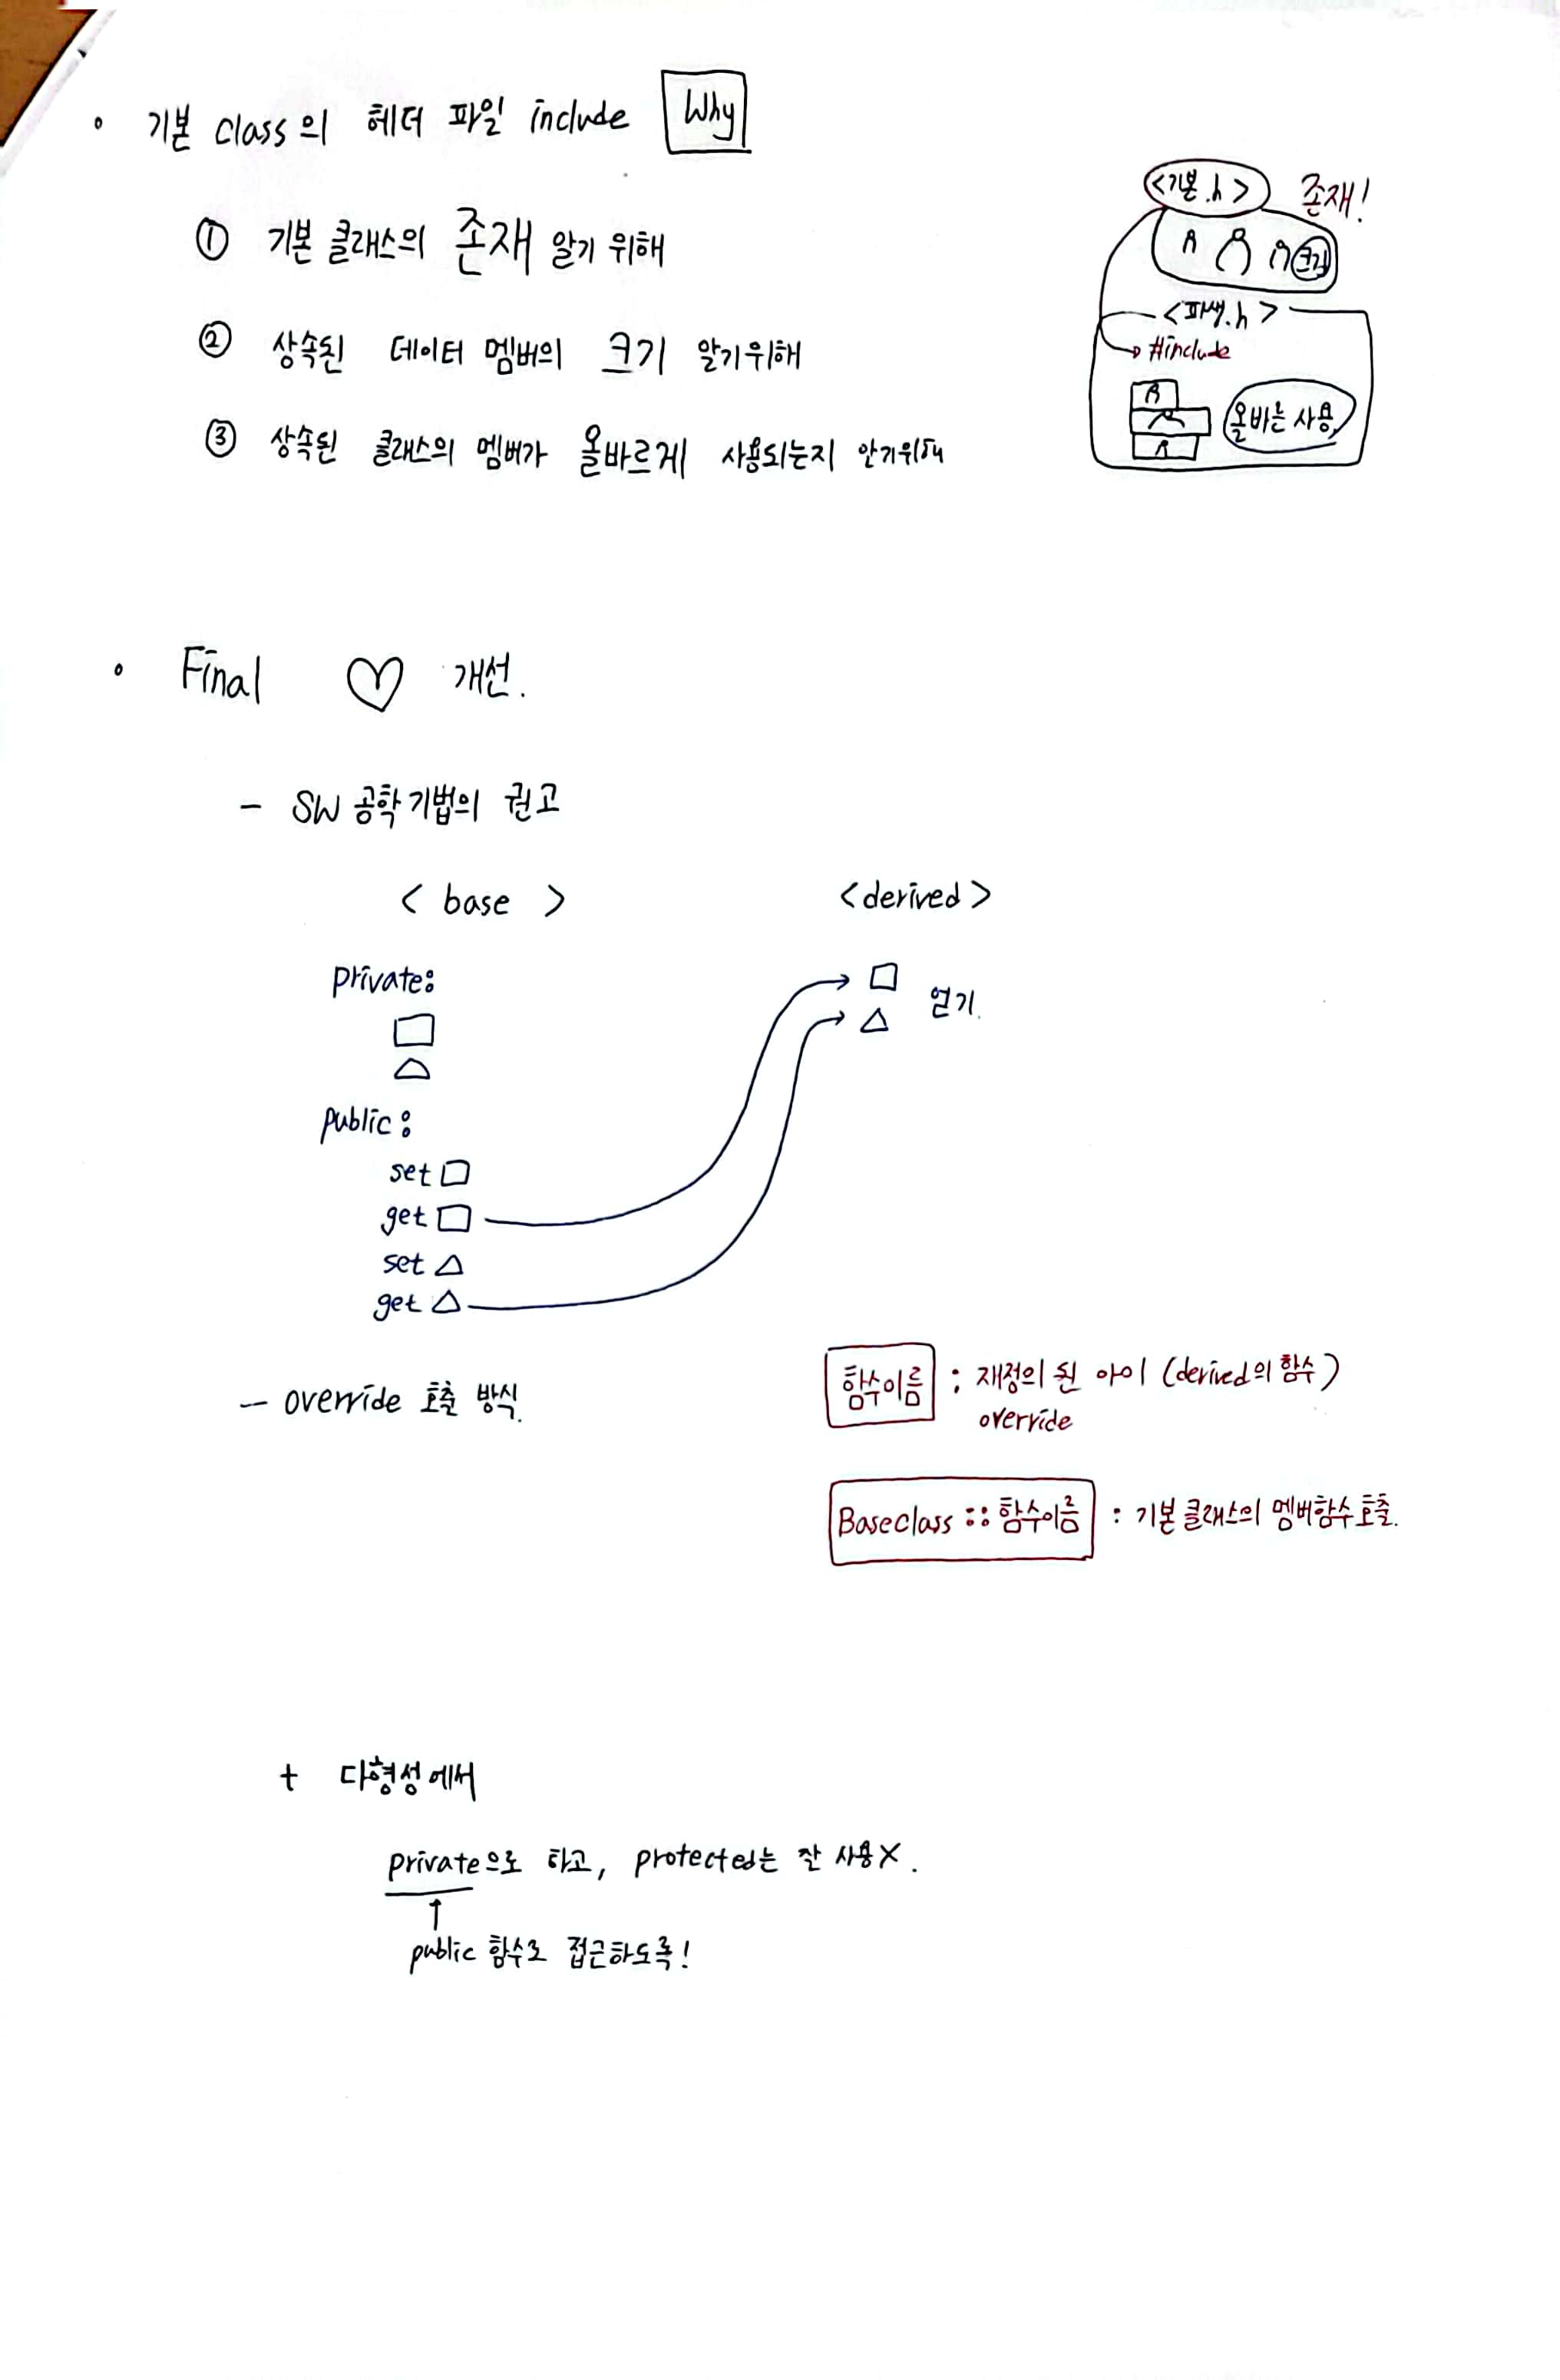 기본 class의 헤더 파일 include Why
① 기본 클래스의 존재 알기 위해
② 상속된 데이터 멤버의 크기 알기위해
③ 상속된 클래스의 멤버가 올바르게 사용되는지 알기위해
<기본.h> 존재!
크기
<파생.h>
#include
올바른 사용
Final ♡ 개선.
- SW 공학기법의 권고
< base > <derived>
private:
얻기.
public:
set □
get □
set △
get △
- override 호출 방식.
함수이름 : 재정의 된 아이 (derived의 함수)
override
Baseclass :: 함수이름 : 기본 클래스의 멤버함수 호출.
+ 다형성에서
private으로 하고, protected는 잘 사용X.
↑
public 함수로 접근하도록!